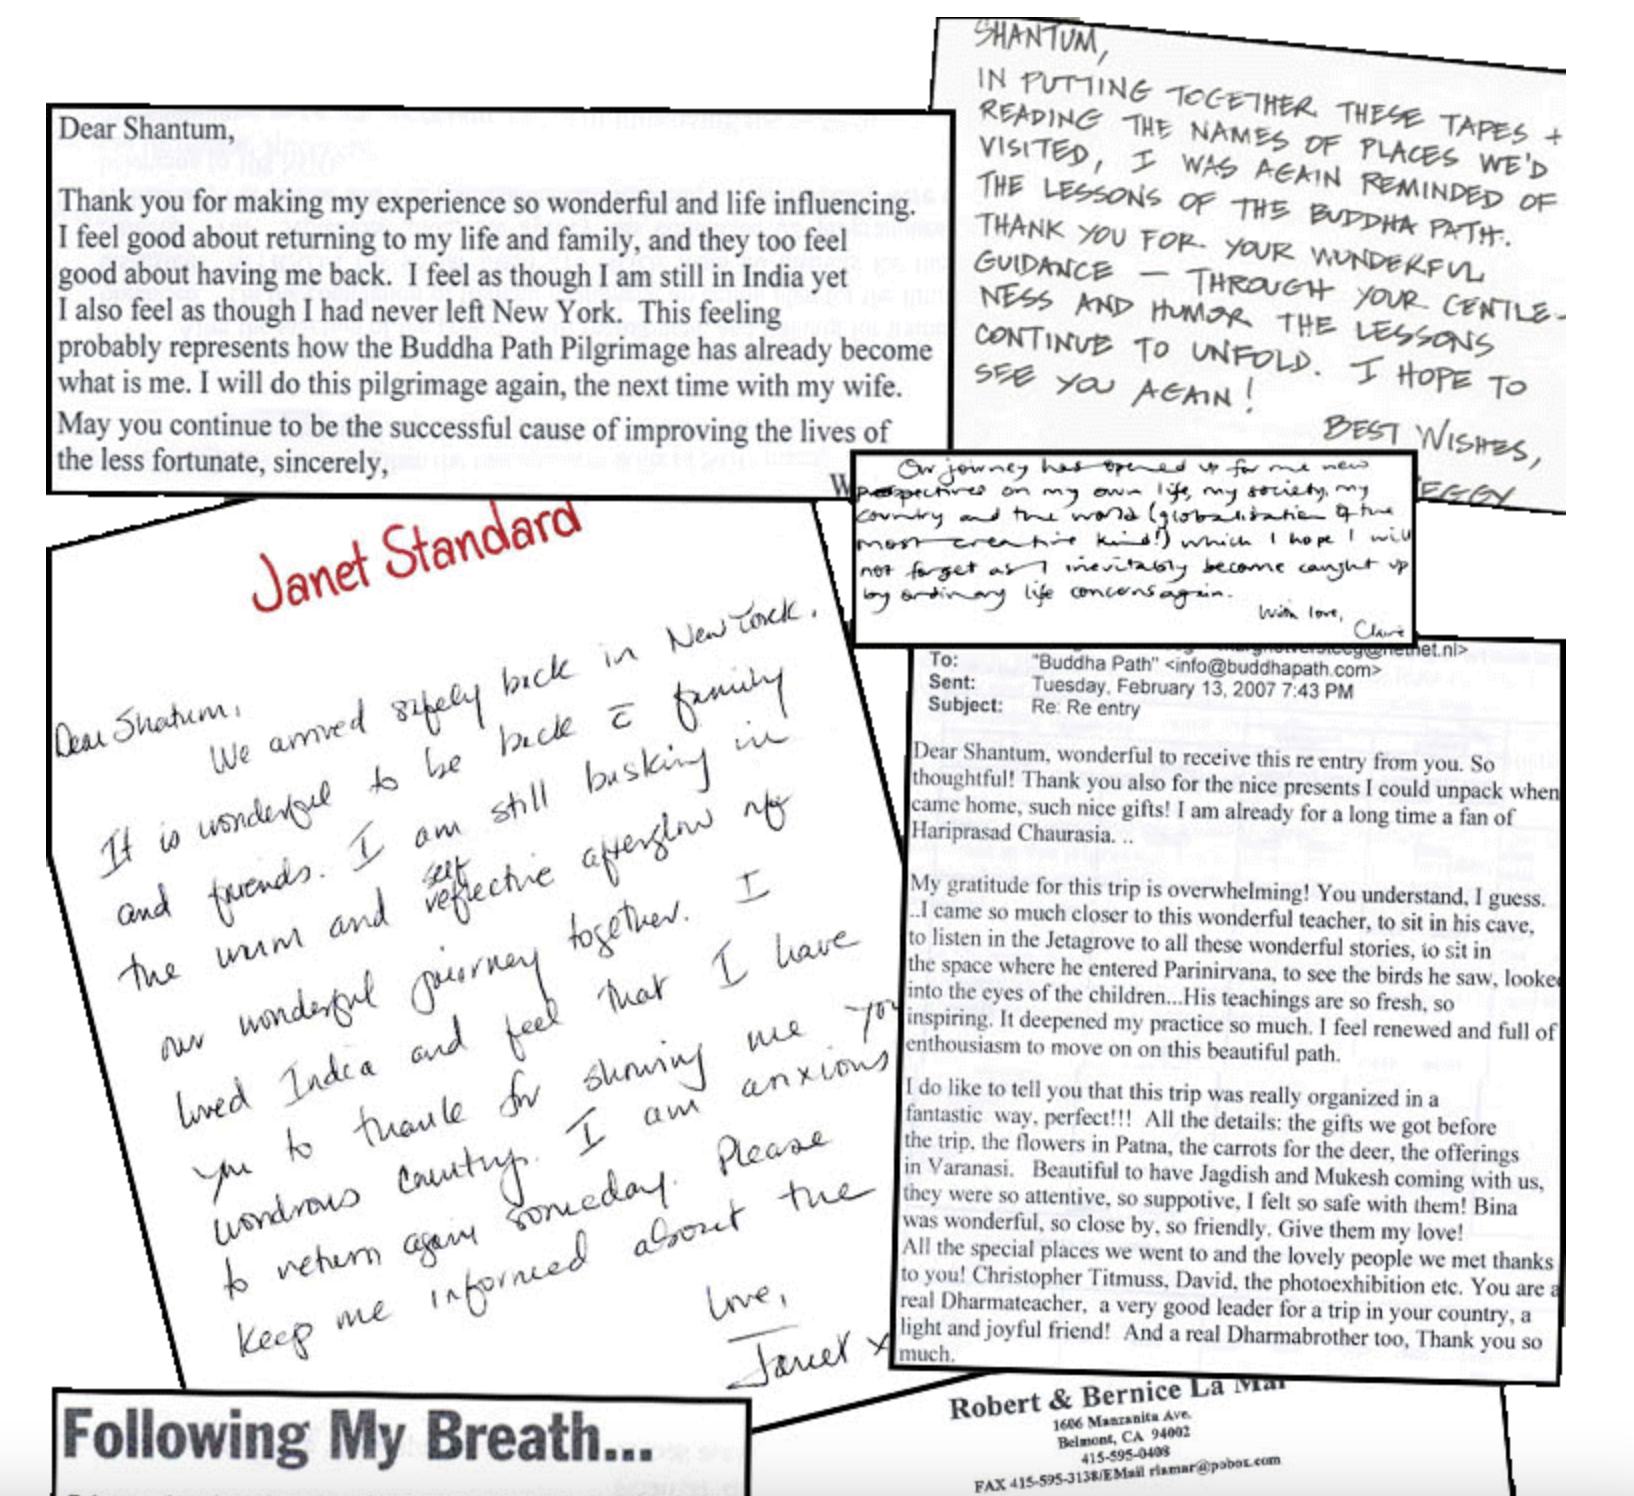 Dear Shantum,
Thank you for making my experience so wonderful and life influencing.
I feel good about returning to my life and family, and they too feel
good about having me back. I feel as though I am still in India yet
I also feel as though I had never left New York. This feeling
probably represents how the Buddha Path Pilgrimage has already become
what is me. I will do this pilgrimage again, the next time with my wife.
May you continue to be the successful cause of improving the lives of
the less fortunate, sincerely,
W
SHANTUM,
IN PUTTING TOGETHER THESE TAPES +
READING THE NAMES OF PLACES WE'D
VISITED, I WAS AGAIN REMINDED OF
THE LESSONS OF THE BUDDHA PATH.
THANK YOU FOR YOUR WONDERFUL
GUIDANCE — THROUGH YOUR GENTLE-
NESS AND HUMOR THE LESSONS
CONTINUE TO UNFOLD. I HOPE TO
SEE YOU AGAIN!
BEST WISHES,
EGGY
Our journey has opened up for me new
perspectives on my own life, my society, my
country and the world (globalisation of the
most creative kind!) which I hope I will
not forget as I inevitably become caught up
by ordinary life concerns again.
With love,
Claire
Janet Standard
Dear Shatum,
We arrived safely back in New York.
It is wonderful to be back c̄ family
and friends. I am still basking in
the warm and self reflective afterglow of
our wonderful journey together. I
loved India and feel that I have
you to thank for showing me you
wondrous country. I am anxious
to return again someday. Please
keep me informed about the
Love,
Janet x
To: "Buddha Path" <info@buddhapath.com>
Sent: Tuesday, February 13, 2007 7:43 PM
Subject: Re: Re entry
Dear Shantum, wonderful to receive this re entry from you. So
thoughtful! Thank you also for the nice presents I could unpack when
came home, such nice gifts! I am already for a long time a fan of
Hariprasad Chaurasia. ..
My gratitude for this trip is overwhelming! You understand, I guess.
..I came so much closer to this wonderful teacher, to sit in his cave,
to listen in the Jetagrove to all these wonderful stories, to sit in
the space where he entered Parinirvana, to see the birds he saw, looke
into the eyes of the children...His teachings are so fresh, so
inspiring. It deepened my practice so much. I feel renewed and full of
enthousiasm to move on on this beautiful path.
I do like to tell you that this trip was really organized in a
fantastic way, perfect!!! All the details: the gifts we got before
the trip, the flowers in Patna, the carrots for the deer, the offerings
in Varanasi. Beautiful to have Jagdish and Mukesh coming with us,
they were so attentive, so suppotive, I felt so safe with them! Bina
was wonderful, so close by, so friendly. Give them my love!
All the special places we went to and the lovely people we met thanks
to you! Christopher Titmuss, David, the photoexhibition etc. You are a
real Dharmateacher, a very good leader for a trip in your country, a
light and joyful friend! And a real Dharmabrother too, Thank you so
much.
Following My Breath...
Robert & Bernice La Mar
1606 Manzanita Ave.
Belmont, CA 94002
415-595-0408
FAX 415-595-3138/EMail rlamar@pobox.com